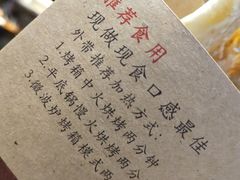 推荐食用
现做现食口感最佳
外带推荐加热方式：
1.烤箱中火烘烤两分钟
2.平底锅慢火烘烤两分
3.微波炉烤箱模式两